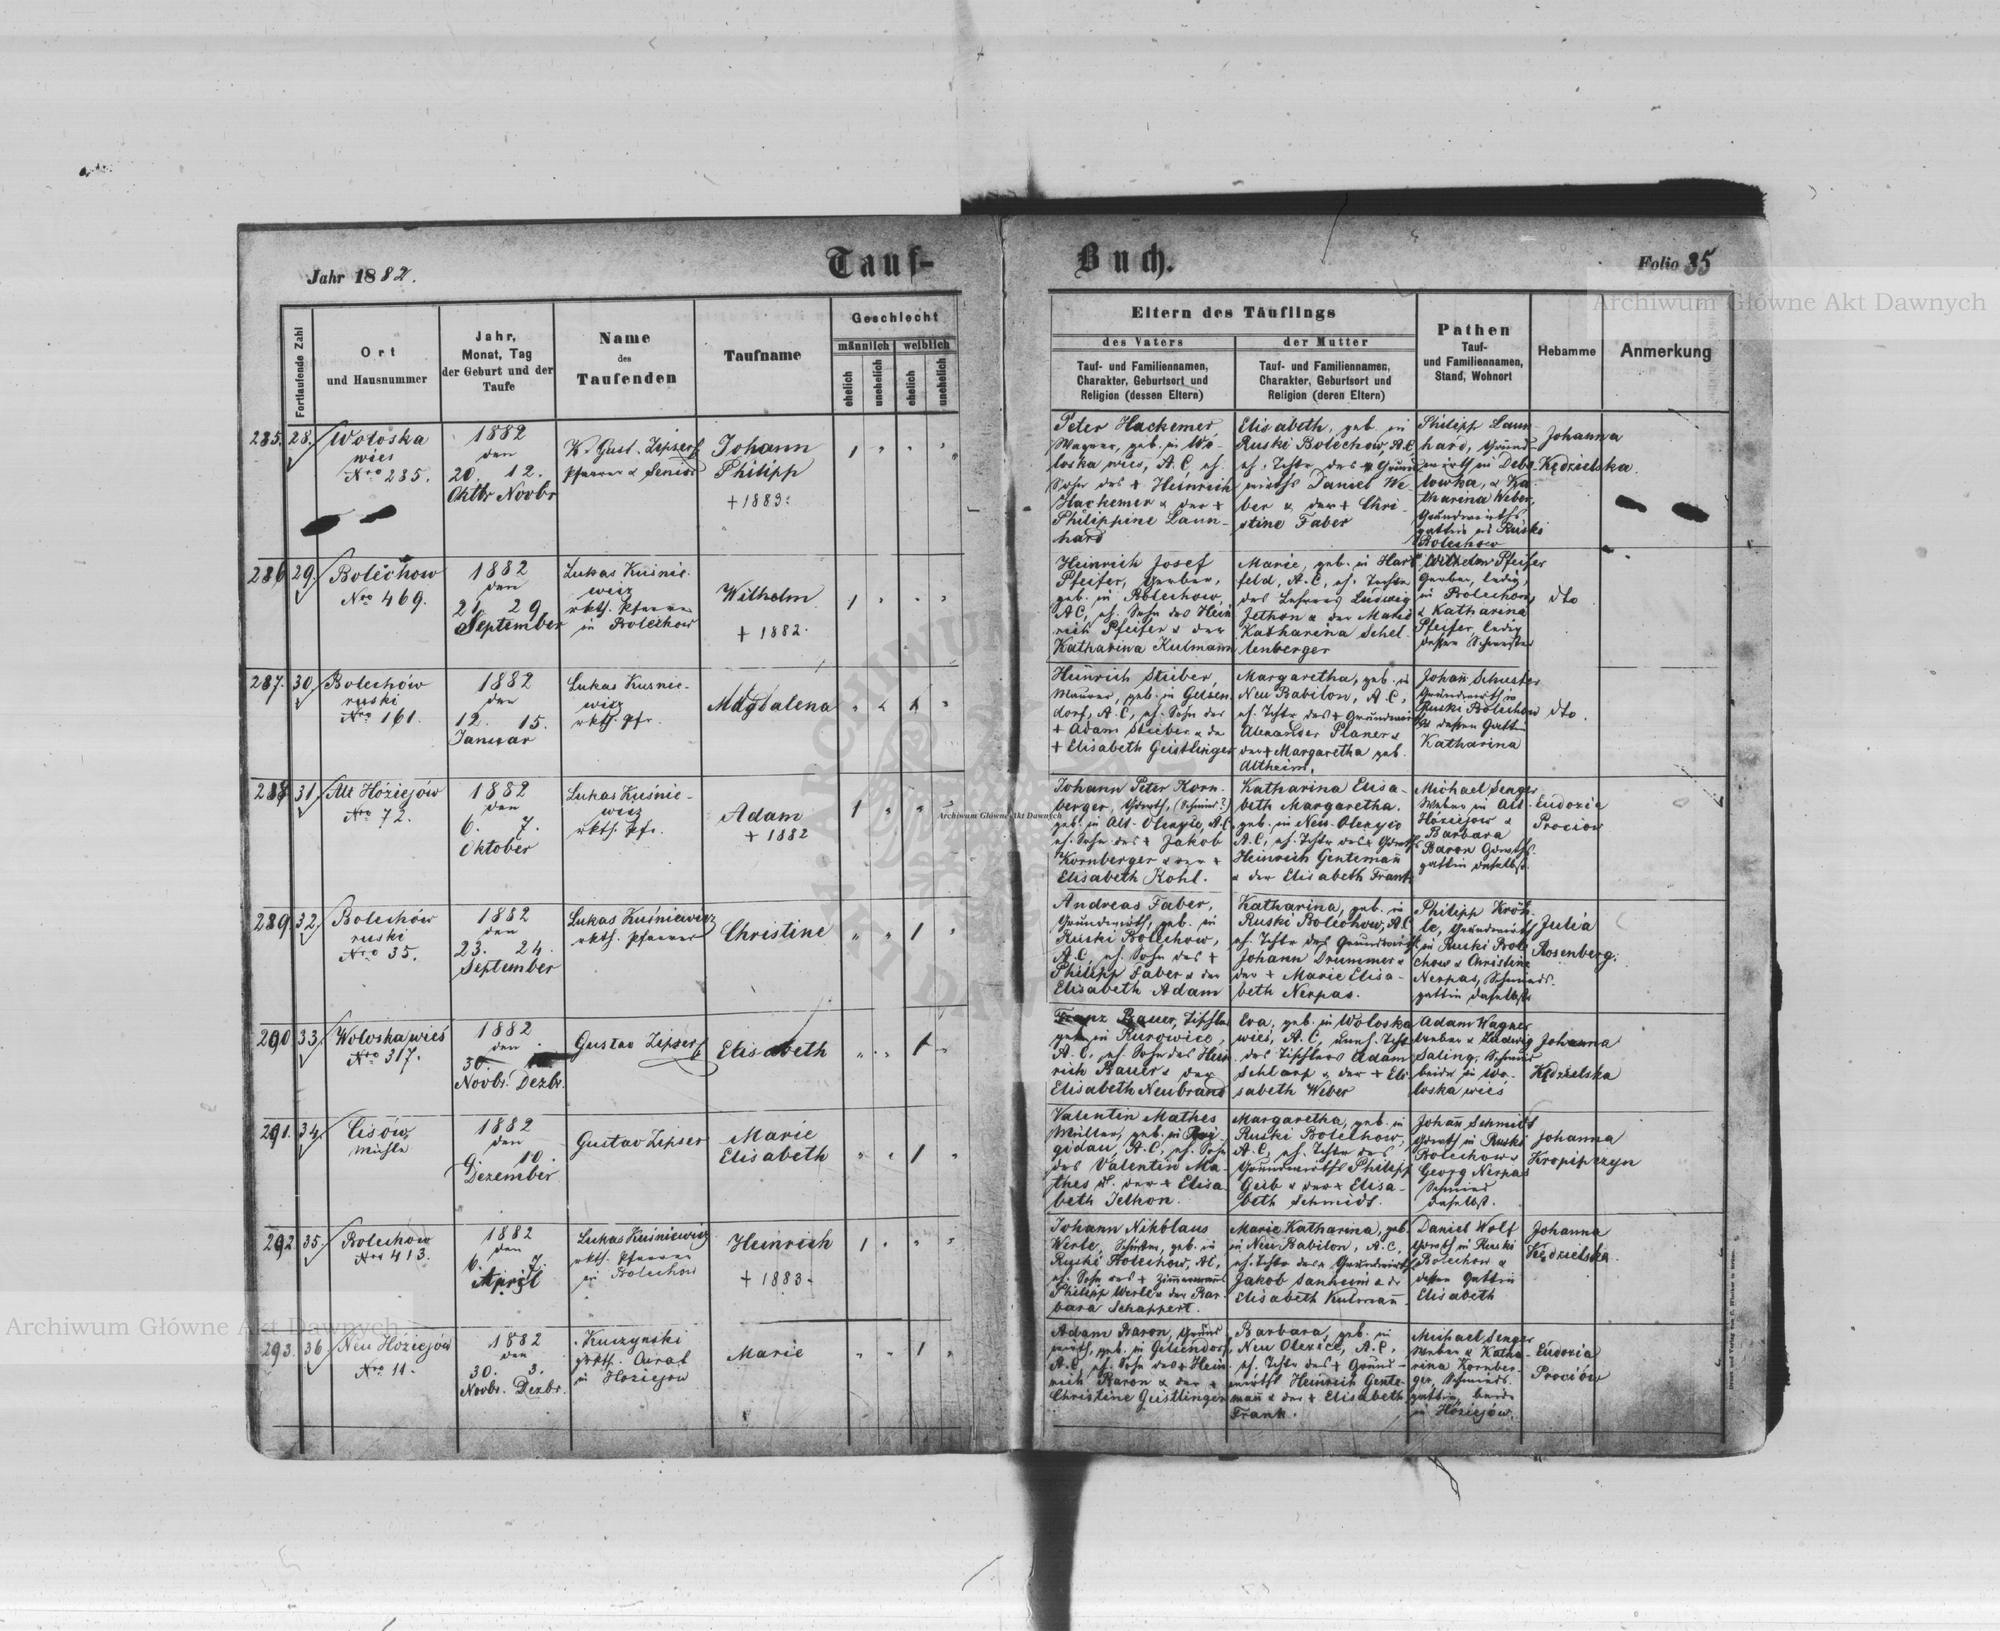 Jahr 1882.
Tauf-
Buch.
Folio 35
Archiwum Główne Akt Dawnych
Fortlaufende Zahl
Ort
und Hausnummer
Jahr,
Monat, Tag
der Geburt und der
Taufe
Name
des
Taufenden
Taufname
Geschlecht
männlich
weiblich
ehelich
unehelich
ehelich
unehelich
Eltern des Täuflings
des Vaters
Tauf- und Familiennamen,
Charakter, Geburtsort und
Religion (dessen Eltern)
der Mutter
Tauf- und Familiennamen,
Charakter, Geburtsort und
Religion (deren Eltern)
Pathen
Tauf-
und Familiennamen,
Stand, Wohnort
Hebamme
Anmerkung
285. 28.
Wołoska
wieś
Nro 285.
1882
den
20. 12.
Oktbr Novbr
Gust. Zipser
Pfarrer & Senior
Johann
Philipp
+ 1883.
Peter Hackemer
Wagner, geb. in Wo-
łoska wieś, A.C, eh.
Sohn des + Heinrich
Hackemer & der +
Philippine Laun-
hard
Elisabeth, geb. in
Ruski Bolechow, A.C,
eh. Tchtr des Grund
wirths Daniel We-
ber & der + Chri-
stine Faber
Philipp Laun
hard, Grund
wirth in Debo-
lowka, & Ka
tharina Weber,
Grundwirths
gattin in Ruski
Bolechow
Johanna
Kędzielska.
286 29.
Bolechow
Nro 469.
1882
den
21. 29.
September
Lukas Kuśnie-
wicz
rkth. Pfarrer
in Bolechow
Wilhelm
+ 1882.
Heinrich Josef
Pfeifer, Gerber,
geb. in Bolechow,
AC, eh. Sohn des Hein
rich Pfeifer & der
Katharina Kulmann
Marie, geb. in Hart
feld, A.C, eh. Tochter
des Lehrers Ludwig
Jethon & der Marie
Katharina Schel-
lenberger
Wilhelm Pfeifer
Gerber, ledig,
in Bolechow,
& Katharina
Pfeifer, ledig
dessen Schwester
dto
287. 30.
Bolechów
ruski
Nro 161.
1882
den
12. 15.
Januar
Lukas Kusnie-
wicz
rkth. Pfr.
Magdalena
Heinrich Stieber,
Maurer, geb. in Gelsen
dorf, A.C, eh. Sohn des
+ Adam Stieber & der
+ Elisabeth Geistlinger
Margaretha, geb. in
Neu Babilon, A.C,
eh. Tchtr des + Grundwirths
Alexander Planer &
der + Margaretha geb.
Altheim.
Johan̄ Schuster
Grundwirth in
Ruski Bolechow
& dessen Gattin
Katharina
dto.
288 31.
Alt Hóziejów
Nro 72.
1882
den
6. 7.
Oktober
Lukas Kuśnie-
wicz
rkth. Pfr.
Adam
+ 1882
Johann Peter Korn-
berger, Grdwrth, (Schmied?)
geb. in Alt-Olexyce, A.C,
eh. Sohn des + Jakob
Kornberger & der +
Elisabeth Kohl.
Katharina Elisa-
beth Margaretha.
geb. in Neu-Olexyce
A.C, eh. Tchtr des + Grdwrths
Heinrich Gentemañ
& der Elisabeth Frank
Michael Senger
Weber in Alt
Hóziejow &
Barbara
Baron Grdwrths-
gattin daselbst.
Eudoxia
Prociow
Archiwum Główne Akt Dawnych
289. 32.
Bolechów
ruski
Nro 35.
1882
den
23. 24.
September
Lukas Kuśniewicz
rkth. Pfarrer
Christine
Andreas Faber,
Grundwirth, geb. in
Ruski Bolechow,
A.C, eh. Sohn des +
Philipp Faber & der
Elisabeth Adam
Katharina, geb. in
Ruski Bolechow, AC
eh. Tchtr des Grundwirths
Johann Drummer &
der + Marie Elisa-
beth Nerpas.
Philipp Kröh-
le, Grundwirth
in Ruski Bole
chow & Christine
Nerpas, Schmieds-
gattin daselbst.
Julia
Rosenberg.
290 33.
Wołoska wieś
Nro 317.
1882
den
30.
Novbr. Dezbr.
Gustav Zipser
Elisabeth
Franz Bauer, Tischler
geb. in Kurowice,
A.C, eh. Sohn des Hein
rich Bauer & der
Elisabeth Neubrand
Eva, geb. in Wołoska
wieś, A.C, uneh. Tcht
des Tischlers Adam
Schlarp & der + Eli-
sabeth Weber
Adam Wagner
Weber & Ludwig
Saling, Schmied
beide in Wo-
łoska wieś
Johanna
Kędzielska
291. 34.
Cisów
Mühle
1882
den
9. 10.
Dezember
Gustav Zipser
Marie
Elisabeth
Valentin Mathes
Müller, geb. in Bri-
gidau, A.C, eh. Sohn
des Valentin Ma-
thes & der + Elisa-
beth Jethon.
Margaretha, geb. in
Ruski Bolechow,
A.C, eh. Tchtr des
Grundwirths Philipp
Geib & der + Elisa-
beth Schmidt.
Johañ Schmidt
Grdwrth in Ruski
Bolechow &
Georg Nerpas
Schmied
daselbst.
Johanna
Kropipczyn
292. 35.
Bolechow
Nro 413.
1882
den
6. 7.
April
Lukas Kuśniewicz
rkth. Pfarrer
in Bolechow
Heinrich
+ 1883.
Johann Nikolaus
Werle, geb. in
Ruski Bolechow, AC,
eh. Sohn des + Zimmermanns
Philipp Werle & der Bar-
bara Schappert.
Marie Katharina, geb.
in Neu Babilon, A.C,
eh. Tchtr des + Grundwirths
Jakob Sanheim & der
Elisabeth Kulmañ
Daniel Wolf
Grdwrth in Ruski
Bolechow &
dessen Gattin
Elisabeth
Johanna
Kędzielska
293. 36.
Neu Hóziejów
Nro 11.
1882
den
30. 3.
Novbr. Dezbr.
Kuczynski
grkth. Curat
in Hoziejow
Marie
Adam Baron, Grund
wirth, geb. in Gelsendorf
A.C, eh. Sohn des + Hein
rich Baron & der +
Christine Geistlinger
Barbara, geb. in
Neu Olexice, A.C,
eh. Tchtr des + Grund-
wirths Heinrich Gente-
mañ & der + Elisabeth
Frank.
Michael Senger
Weber & Katha-
rina Kornber-
ger, Schmieds
gattin, beide
in Hóziejów.
Eudoxia
Prociów
Archiwum Główne Akt Dawnych